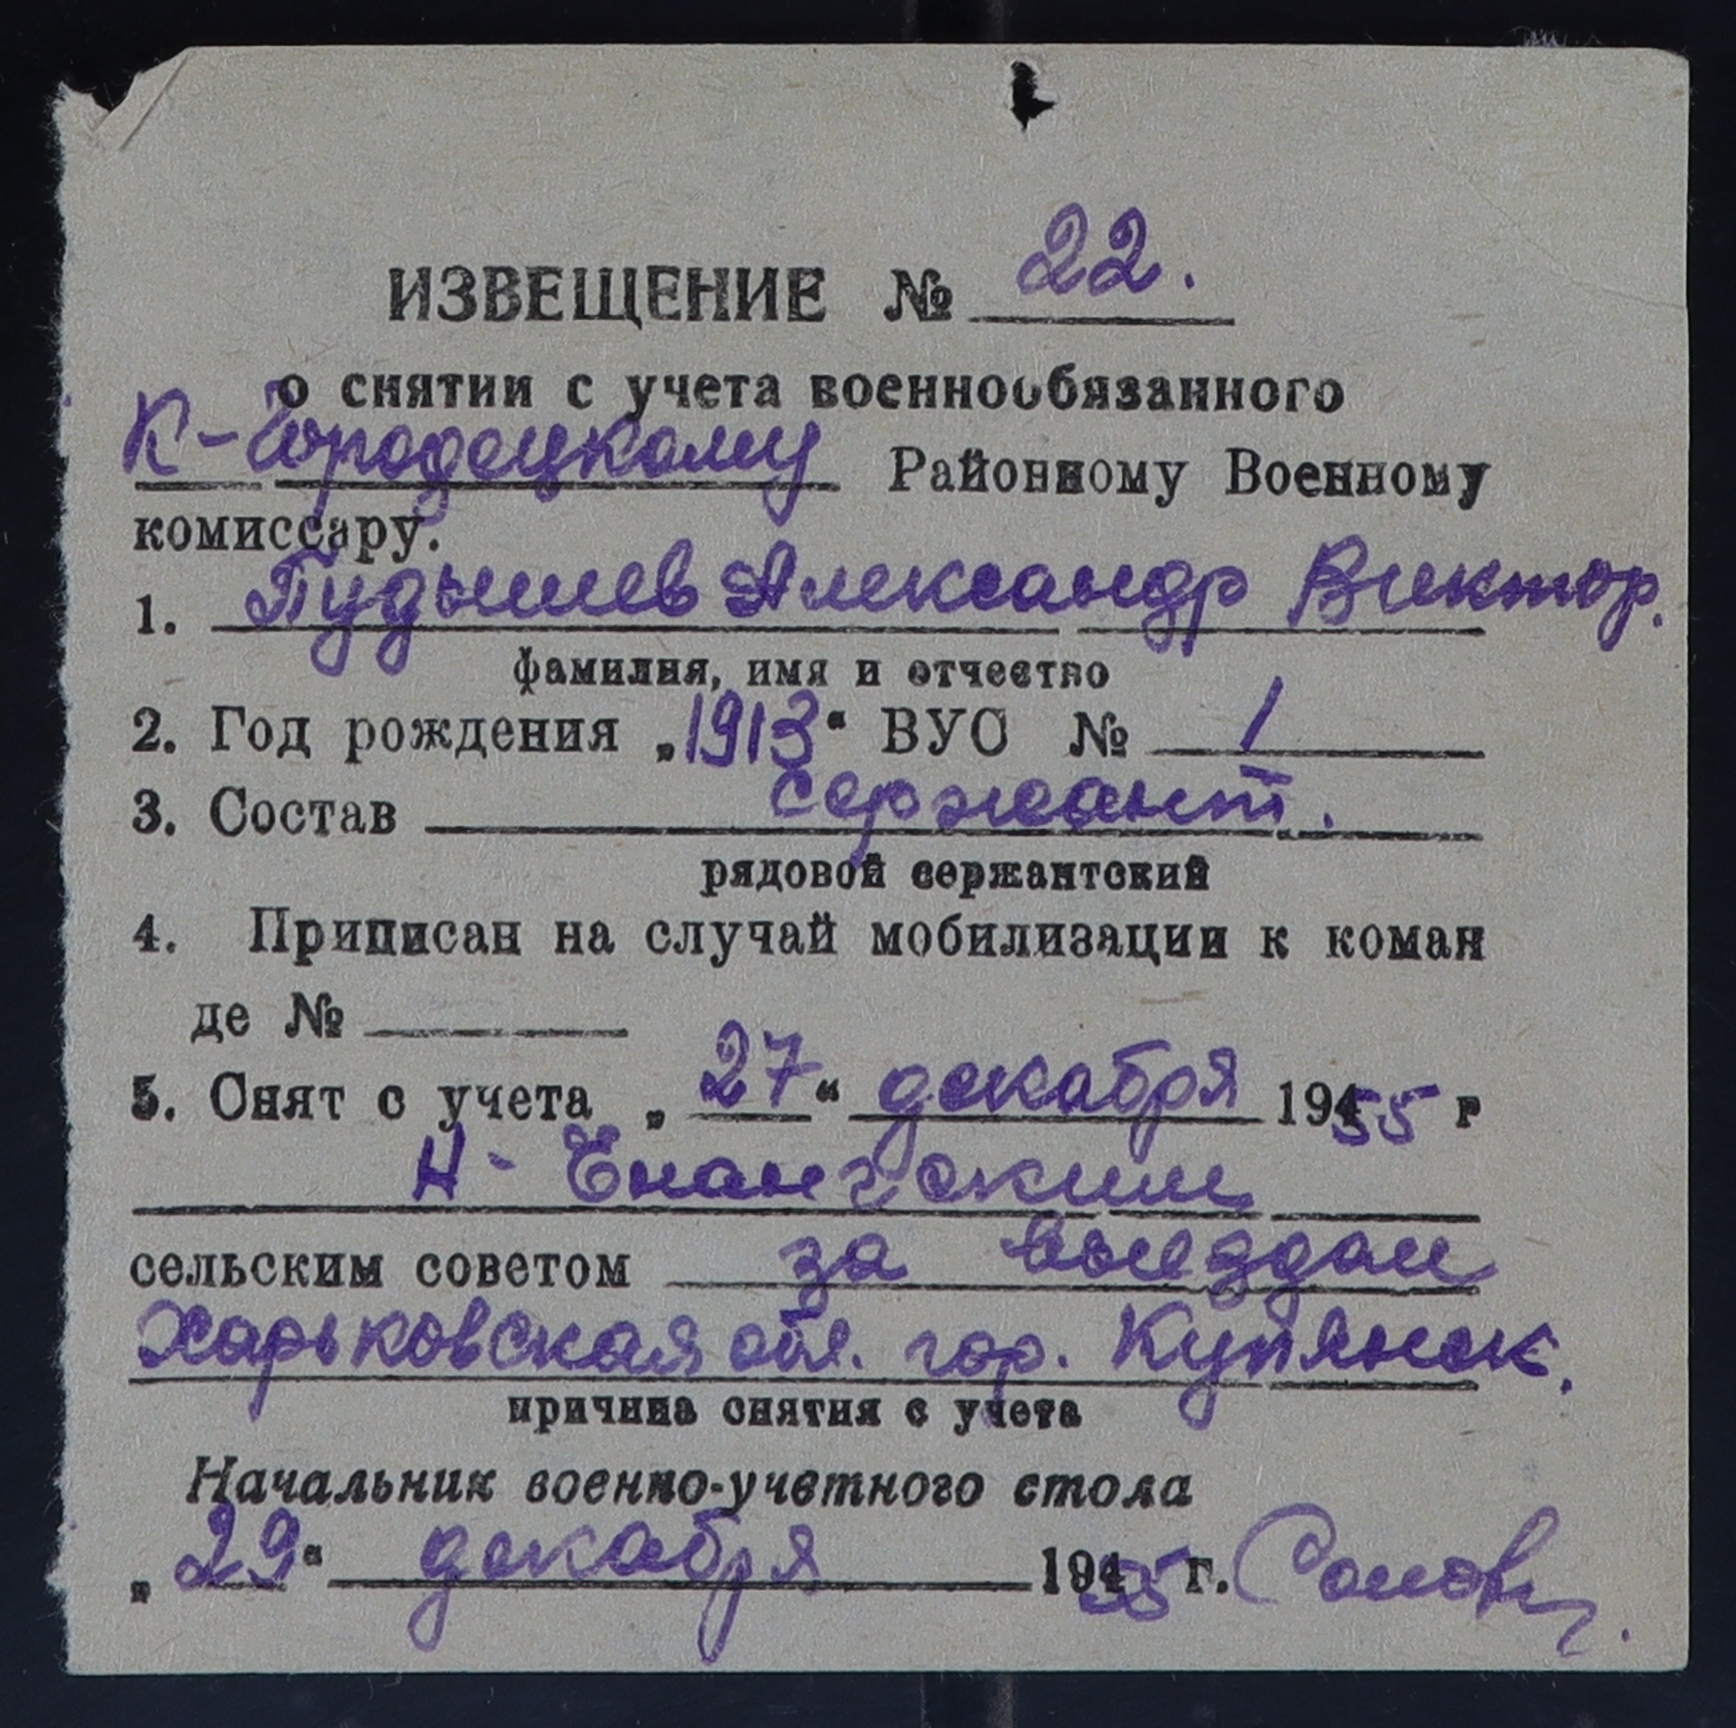 ИЗВЕЩЕНИЕ № 22.
о снятии с учета военнообязанного
К-Городецкому Районному Военному
комиссару.
1. Пудышев Александр Виктор.
фамилия, имя и отчество
2. Год рождения „1913“ ВУС № 1
3. Состав сержант.
рядовой сержантский
4. Приписан на случай мобилизации к коман
де №
5. Снят с учета „27“ декабря 1955 г
Н-Енангским
сельским советом за выездом
Харьковская обл. гор. Купянск.
причина снятия с учета
Начальник военно-учетного стола
„29“ декабря 1955 г.